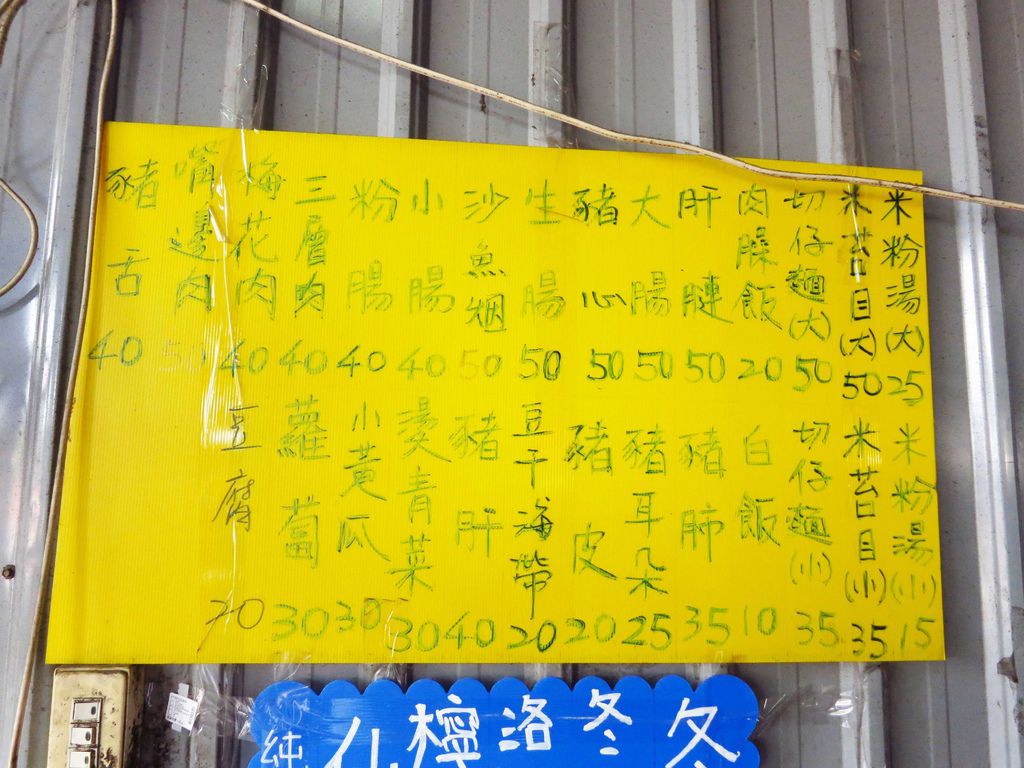 米粉湯(大)25
米苔目(大)50
切仔麵(大)50
肉臊飯20
肝腱50
大腸50
豬心50
生腸50
沙魚烟50
小腸40
粉腸40
三層肉40
梅花肉40
嘴邊肉50
豬舌40
米粉湯(小)15
米苔目(小)35
切仔麵(小)35
白飯10
豬肺35
豬耳朵25
豬皮20
豆干海帶20
豬肝40
燙青菜30
小黃瓜30
蘿蔔30
豆腐20
冬冬洛檸
純